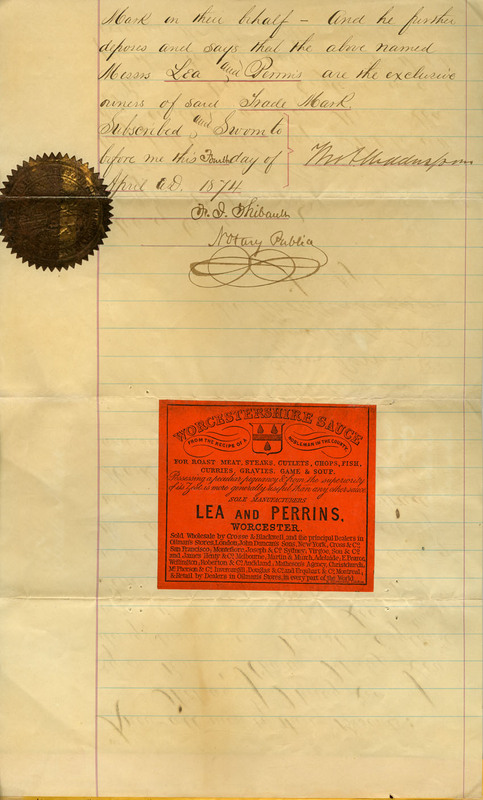 Mark in their behalf – And he further
deposes and says that the above named
Messrs Lea and Perrins are the exclusive
owners of said Trade Mark
Subscribed and Sworn to
before me this Fourth day of
April A.D. 1874
Notary Public
WORCESTERSHIRE SAUCE
FROM THE RECIPE OF A NOBLEMAN IN THE COUNTY.
FOR ROAST MEAT, STEAKS, CUTLETS, CHOPS, FISH,
CURRIES, GRAVIES, GAME & SOUP.
Possessing a peculiar piquancy & from the superiority
of its Zest, is more generally useful than any other sauce
SOLE MANUFACTURERS
LEA AND PERRINS,
WORCESTER.
Sold Wholesale by Crosse & Blackwell, and the principal Dealers in
Oilman's Stores, London, John Duncan's Sons, New York, Cross & Co.
San Francisco, Montefiore, Joseph & Co. Sydney, Virgoe, Son & Co.
and James Henty & Co. Melbourne, Martin & Münch, Adelaide, E. Pearce,
Wellington, Roberton & Co. Auckland, Matheson's Agency, Christchurch,
Mc. Pherson & Co. Invercargill, Douglas & Co. and Urquhart & Co. Montreal,
& Retail by Dealers in Oilman's Stores, in every part of the World